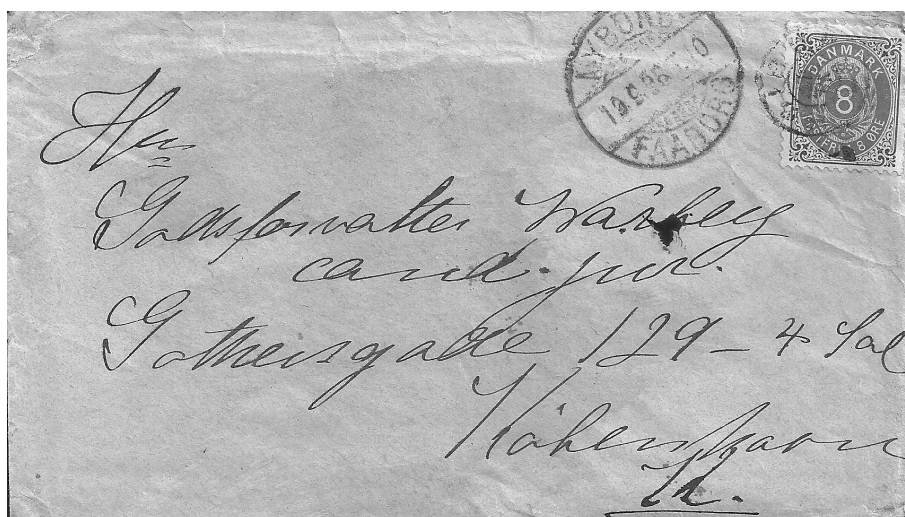 NYBORG
19.9.98
FAABORG
DANMARK
8
8 ØRE
Hrr
Godsforvalter Warberg
cand. jur.
Gothersgade 129 - 4 Sal
København
K.